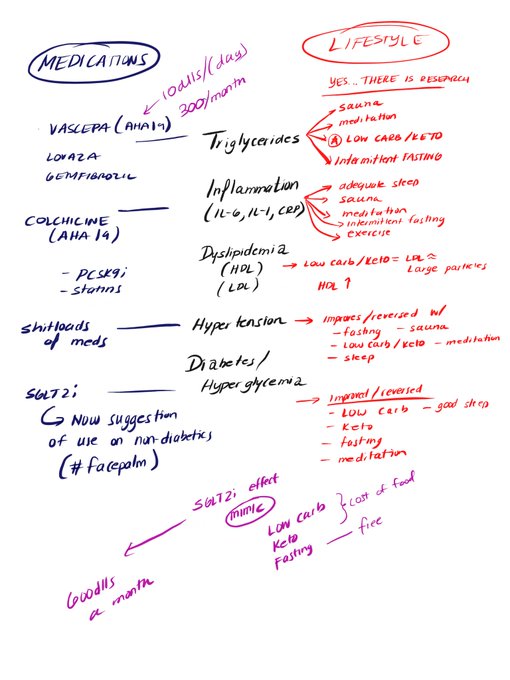 MEDICATIONS
10dlls/(day)
300/month
VASCEPA (AHA19)
LOVAZA
GEMFIBROZIL
COLCHICINE
(AHA 19)
- PCSK9i
- statins
shitloads
of meds
SGLT2i
Now suggestion
of use on non-diabetics
(#facepalm)
Triglycerides
Inflammation
(IL-6, IL-1, CRP)
Dyslipidemia
(HDL)
(LDL)
Hypertension
Diabetes/
Hyperglycemia
LIFESTYLE
YES... THERE IS RESEARCH
sauna
meditation
A LOW CARB/KETO
Intermittent FASTING
adequate sleep
sauna
meditation
intermittent fasting
exercise
Low carb/Keto = LDL ≈
Large particles
HDL ↑
Improves/reversed w/
- fasting - sauna
- Low carb/Keto - meditation
- sleep
Improved/reversed
- LOW carb - good sleep
- Keto
- fasting
- meditation
SGLT2i effect
mimic
LOW carb
Keto
Fasting
cost of food
free
600dlls
a month